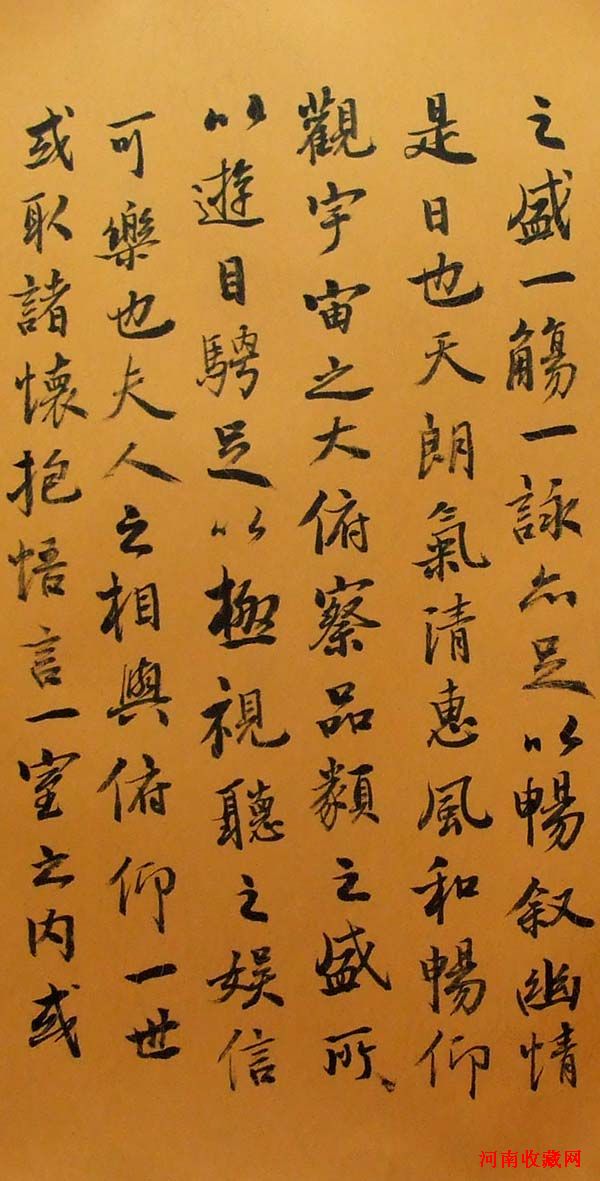 之盛一觴一詠亦足以暢叙幽情
是日也天朗氣清惠風和暢仰
觀宇宙之大俯察品類之盛所
以遊目騁足以極視聽之娱信
可樂也夫人之相與俯仰一世
或取諸懷抱悟言一室之内或
河南收藏网